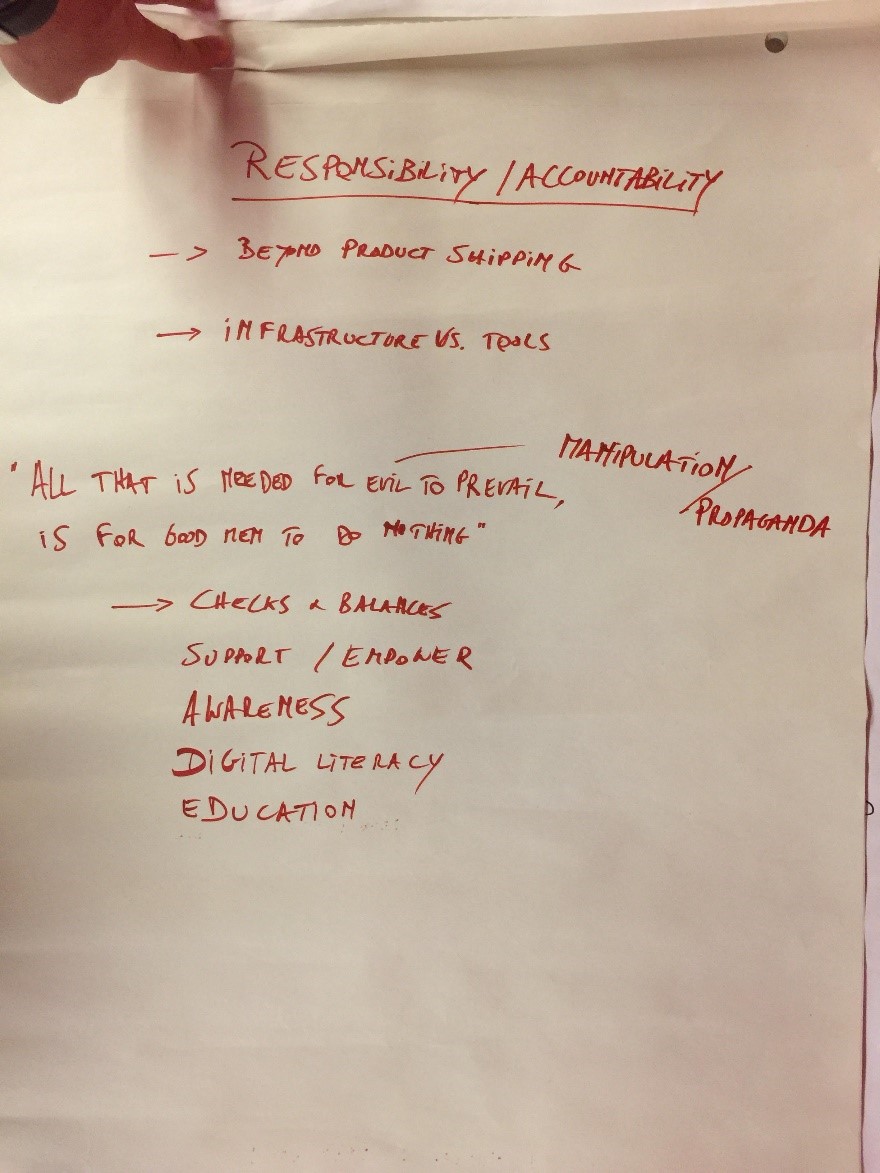 RESPONSiBiLiTY / ACCOUNTABiLiTY
—> BEYOND PRODUCT SHiPPiNG
—> iNFRASTRUCTURE VS. TOOLS
MANiPULATiON /
"ALL THAT iS NEEDED FOR EViL TO PREVAiL,
PROPAGANDA
iS FOR GOOD MEN TO DO NOTHiNG"
—> CHECKS & BALANCES
SUPPORT / EMPOWER
AWARENESS
DiGiTAL LiTERACY
EDUCATION